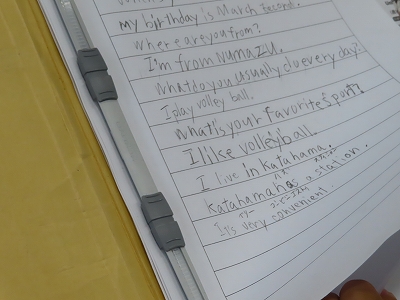 my birthday is March second.
where are you from?
I'm from Numazu.
what do you usually do every day?
I play volley ball.
what is your favorite sport?
I like volleyball.
I live in Katahama.
Katahama has a station.
It's very convenient.